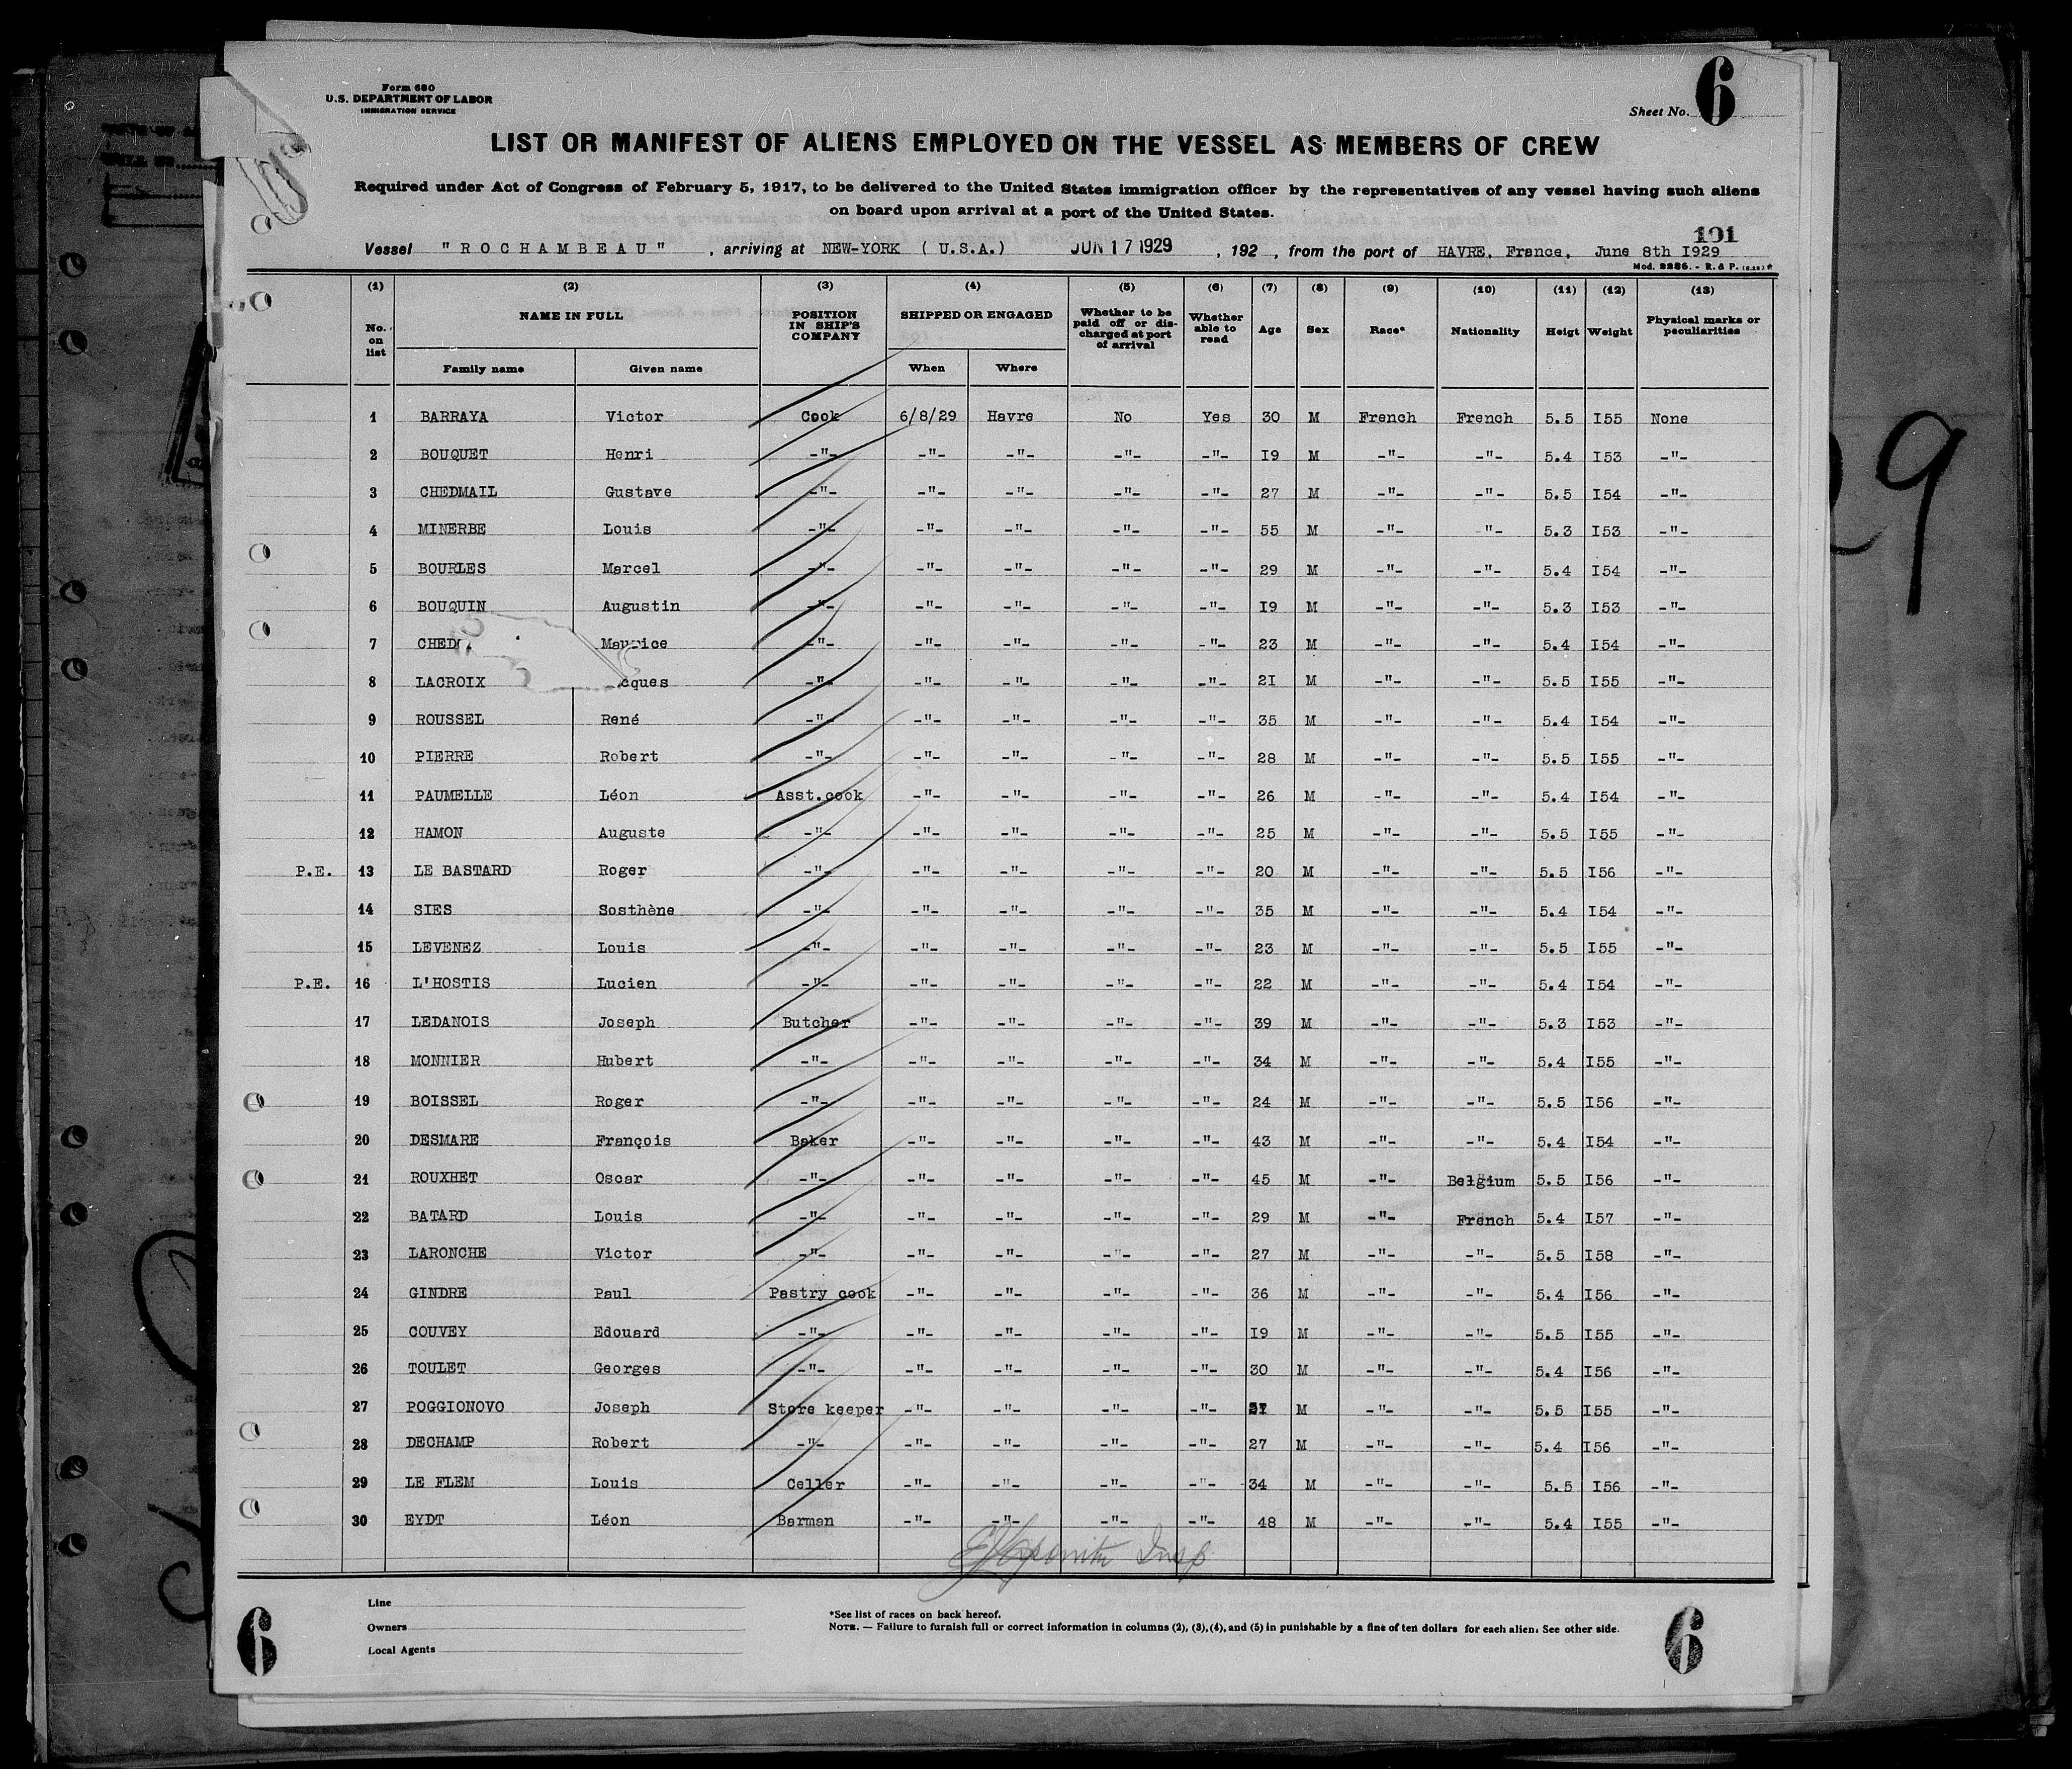 Form 680
U.S. DEPARTMENT OF LABOR
IMMIGRATION SERVICE
Sheet No. 6
LIST OR MANIFEST OF ALIENS EMPLOYED ON THE VESSEL AS MEMBERS OF CREW
Required under Act of Congress of February 5, 1917, to be delivered to the United States immigration officer by the representatives of any vessel having such aliens
on board upon arrival at a port of the United States.
101
Vessel "ROCHAMBEAU" , arriving at NEW-YORK (U.S.A.) JUN 17 1929 , 192 , from the port of HAVRE, France, June 8th I929
Mod. 2286. - R. & P.
(1) (2) (3) (4) (5) (6) (7) (8) (9) (10) (11) (12) (13)
No. on list NAME IN FULL POSITION IN SHIP'S COMPANY SHIPPED OR ENGAGED Whether to be paid off or dis-charged at port of arrival Whether able to read Age Sex Race* Nationality Heigt Weight Physical marks or peculiarities
Family name Given name When Where
1 BARRAYA Victor Cook 6/8/29 Havre No Yes 30 M French French 5.5 I55 None
2 BOUQUET Henri -"- -"- -"- -"- -"- I9 M -"- -"- 5.4 I53 -"-
3 CHEDMAIL Gustave -"- -"- -"- -"- -"- 27 M -"- -"- 5.5 I54 -"-
4 MINERBE Louis -"- -"- -"- -"- -"- 55 M -"- -"- 5.3 I53 -"-
5 BOURLES Marcel -"- -"- -"- -"- -"- 29 M -"- -"- 5.4 I54 -"-
6 BOUQUIN Augustin -"- -"- -"- -"- -"- I9 M -"- -"- 5.3 I53 -"-
7 CHED Maurice -"- -"- -"- -"- -"- 23 M -"- -"- 5.4 I54 -"-
8 LACROIX cques -"- -"- -"- -"- -"- 2I M -"- -"- 5.5 I55 -"-
9 ROUSSEL René -"- -"- -"- -"- -"- 35 M -"- -"- 5.4 I54 -"-
10 PIERRE Robert -"- -"- -"- -"- -"- 28 M -"- -"- 5.5 I55 -"-
11 PAUMELLE Léon Asst.cook -"- -"- -"- -"- 26 M -"- -"- 5.4 I54 -"-
12 HAMON Auguste -"- -"- -"- -"- -"- 25 M -"- -"- 5.5 I55 -"-
P.E. 13 LE BASTARD Roger -"- -"- -"- -"- -"- 20 M -"- -"- 5.5 I56 -"-
14 SIES Sosthène -"- -"- -"- -"- -"- 35 M -"- -"- 5.4 I54 -"-
15 LEVENEZ Louis -"- -"- -"- -"- -"- 23 M -"- -"- 5.5 I55 -"-
P.E. 16 L'HOSTIS Lucien -"- -"- -"- -"- -"- 22 M -"- -"- 5.4 I54 -"-
17 LEDANOIS Joseph Butcher -"- -"- -"- -"- 39 M -"- -"- 5.3 I53 -"-
18 MONNIER Hubert -"- -"- -"- -"- -"- 34 M -"- -"- 5.4 I55 -"-
19 BOISSEL Roger -"- -"- -"- -"- -"- 24 M -"- -"- 5.5 I56 -"-
20 DESMARE François Baker -"- -"- -"- -"- 43 M -"- -"- 5.4 I54 -"-
21 ROUXHET Oscar -"- -"- -"- -"- -"- 45 M -"- Belgium 5.5 I56 -"-
22 BATARD Louis -"- -"- -"- -"- -"- 29 M -"- French 5.4 I57 -"-
23 LARONCHE Victor -"- -"- -"- -"- -"- 27 M -"- -"- 5.5 I58 -"-
24 GINDRE Paul Pastry cook -"- -"- -"- -"- 36 M -"- -"- 5.4 I56 -"-
25 COUVEY Edouard -"- -"- -"- -"- -"- I9 M -"- -"- 5.5 I55 -"-
26 TOULET Georges -"- -"- -"- -"- -"- 30 M -"- -"- 5.4 I56 -"-
27 POGGIONOVO Joseph Store keeper -"- -"- -"- -"- M -"- -"- 5.5 I55 -"-
28 DECHAMP Robert -"- -"- -"- -"- -"- 27 M -"- -"- 5.4 I56 -"-
29 LE FLEM Louis Celler -"- -"- -"- -"- 34 M -"- -"- 5.5 I56 -"-
30 EYDT Léon Barman -"- -"- -"- -"- 48 M -"- -"- 5.4 I55 -"-
Insp
Line
Owners
Local Agents
*See list of races on back hereof.
NOTE. — Failure to furnish full or correct information in columns (2), (3), (4), and (5) in punishable by a fine of ten dollars for each alien. See other side.
6
6
9